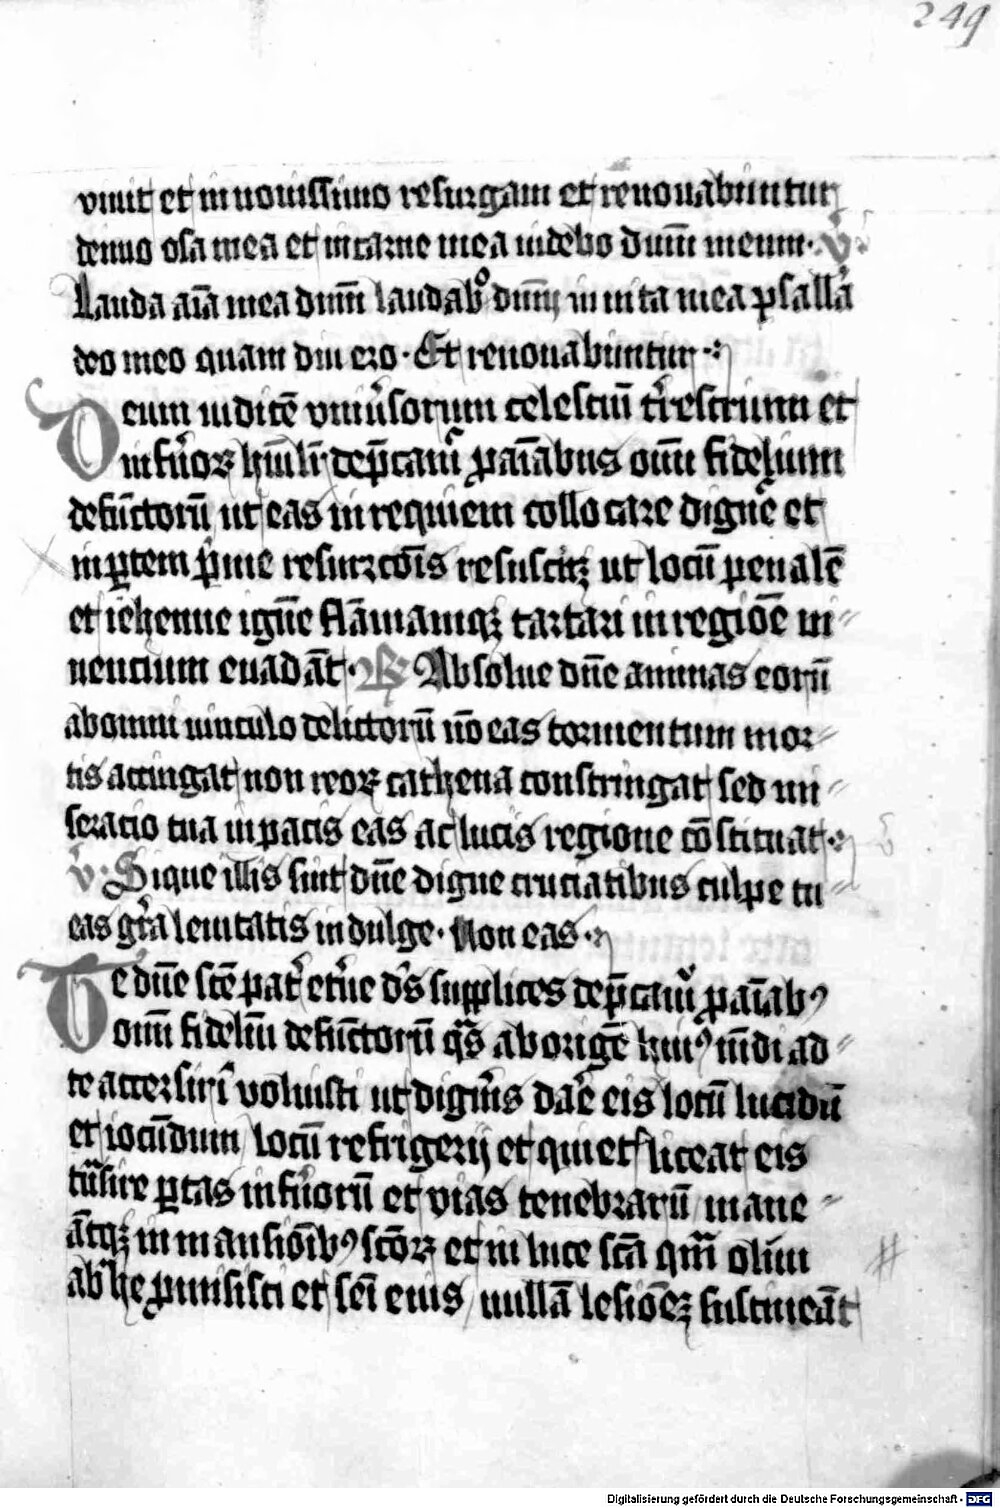 249
viuit et in nouissimo resurgam et renouabuntur
denuo osa mea et in carne mea uidebo dnm̄ meum · V
Lauda aīa mea dnm̄ laudabo dnm̄ in uita mea psallā
deo meo quam diu ero · Et renouabuntur
Deum iudicē vniūsorum celestiū trrestrium et
infrioꝝ hūilr depcam̄ ꝓ aīabus om̄ fidelium
defūctorū ut eas in requiem collocare dignet et
in ꝑtem p̄me resurrcōis resuscitꝫ ut locū penalē
et iehenne ignē flāmamqꝫ tartari in regiōe ui-
uencium euadāt · R Absolue dn̄e animas eorū
ab omni uinculo delictorū nō eas tormentum mor-
tis attingat non reoꝝ cathena constringat sed mi-
seracio tua in pacis eas ac lucis regione cōstituat
V Sique illis sint dn̄e digne cruciatibus culpe tu
eas gr̄a lenitatis indulge · Non eas ·
Te dn̄e scē pat etne ds supplices dep̄cam̄ ꝓ aīabꝰ
om̄ fideliū defūctorū qs̄ ab origē huiꝰ mūdi ad
te accersiri voluisti ut digneris dare eis locū lucidū
et iocūdum locū refrigerij et quietꝭ liceat eis
tn̄sire ꝑtas infrorū et vias tenebrarū mane-
ātqꝫ in mansiōibꝰ scōꝝ et in luce scā qm̄ olim
abrhe ꝓmisisti et semī eius nullā lesiōeꝫ sustineāt
Digitalisierung gefördert durch die Deutsche Forschungsgemeinschaft - DFG